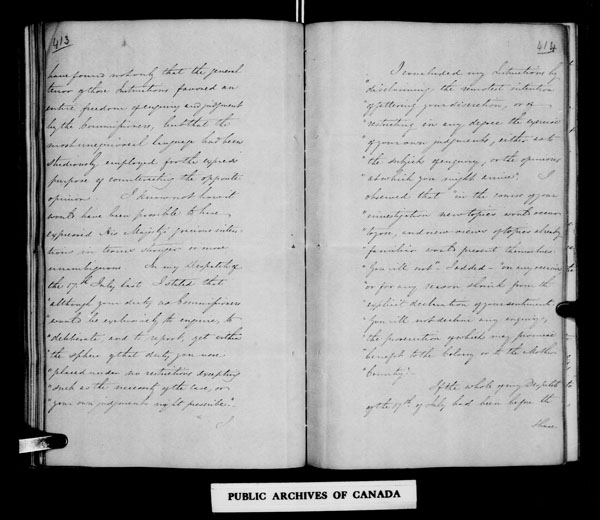 413
have found not only that the general
tenor of those Instructions favored an
entire freedom of enquiry and judgment
by the Commissioners, but that the
most unequivocal language had been
studiously employed for the express
purpose of counteracting the opposite
opinion. I know not how it
would have been possible to have
expressed His Majesty's gracious inten-
tions in terms stronger or more
unambiguous. In my Despatch of
the 17th July last I stated that
"although your duty as Commissioners
"would be exclusively to enquire, to
"deliberate and to report, yet within
"the sphere of that duty, you were
"placed under no restrictions excepting
"such as the necessity of the case, or
"your own judgments might prescribe".
I
414
I concluded my Instructions by
"disclaiming the remotest intention
"of fettering your discretion, or of
"restricting in any degree the exercise
"of your own judgments, either as to
"the subjects of enquiry, or the opinions
"at which you might arrive". I
observed that "in the course of your
"investigation new topics would occur
"to you, and new views of topics already
"familiar would present themselves.
"You will not", I added "on any
"or for any reason shrink from the
"explicit declaration of your sentiments.
"You will not decline any enquiry,
"the prosecution of which may promise
"benefit to the Colony or to the Mother
"Country".
If the whole of my Despatch
of the 17th of July had been before the
House
PUBLIC ARCHIVES OF CANADA